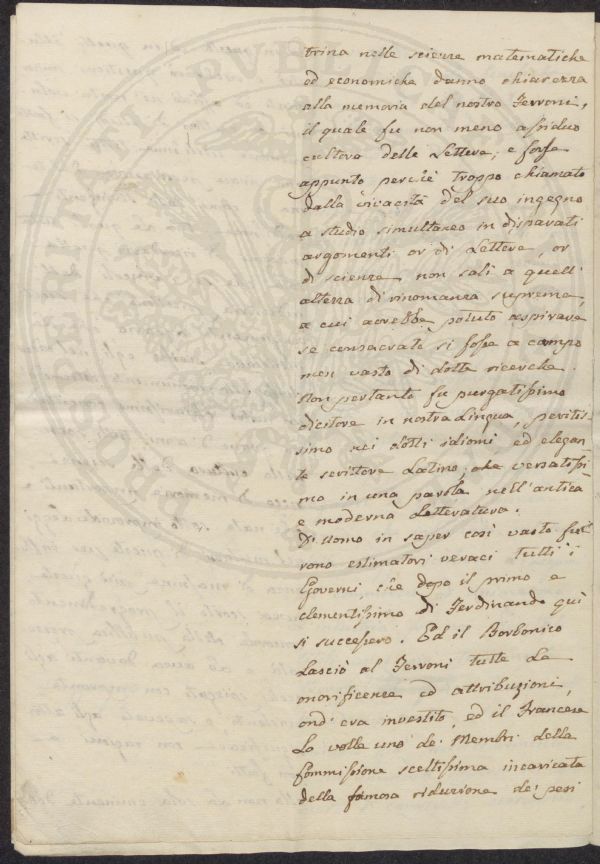 trina nelle scienze matematiche
ed economiche danno chiarezza
alla memoria del nostro Ferroni,
il quale fu non meno assiduo
cultore delle Lettere, e forse
appunto perchè troppo chiamato
dalla vivacità del suo ingegno
a studio simultaneo in disparati
argomenti or di Lettere, or
di scienze non salì a quell'
altezza di rinomanza suprema,
a cui avrebbe potuto aspirare
se consacrato si fosse a campo
men vasto di dotte ricerche.
Non pertanto fu purgatissimo
dicitore in nostra Lingua, peritis-
simo nei dotti idiomi ed elegan-
te scrittore Latino, che versatissi-
mo in una parola nell'antica
e moderna Letteratura.
Di uomo in saper così vasto fu-
rono estimatori veraci tutti i
Governi, che dopo il primo e
clementissimo di Ferdinando quì
si succespero. Ed il Borbonico
Lasciò al Ferroni tutte Le
onorificenze ed attribuzioni,
ond'era investito, ed il Francese
Lo volle uno de' Membri della
Commissione sceltissima incaricata
della famosa riduzione de' pesi
PVBLICA